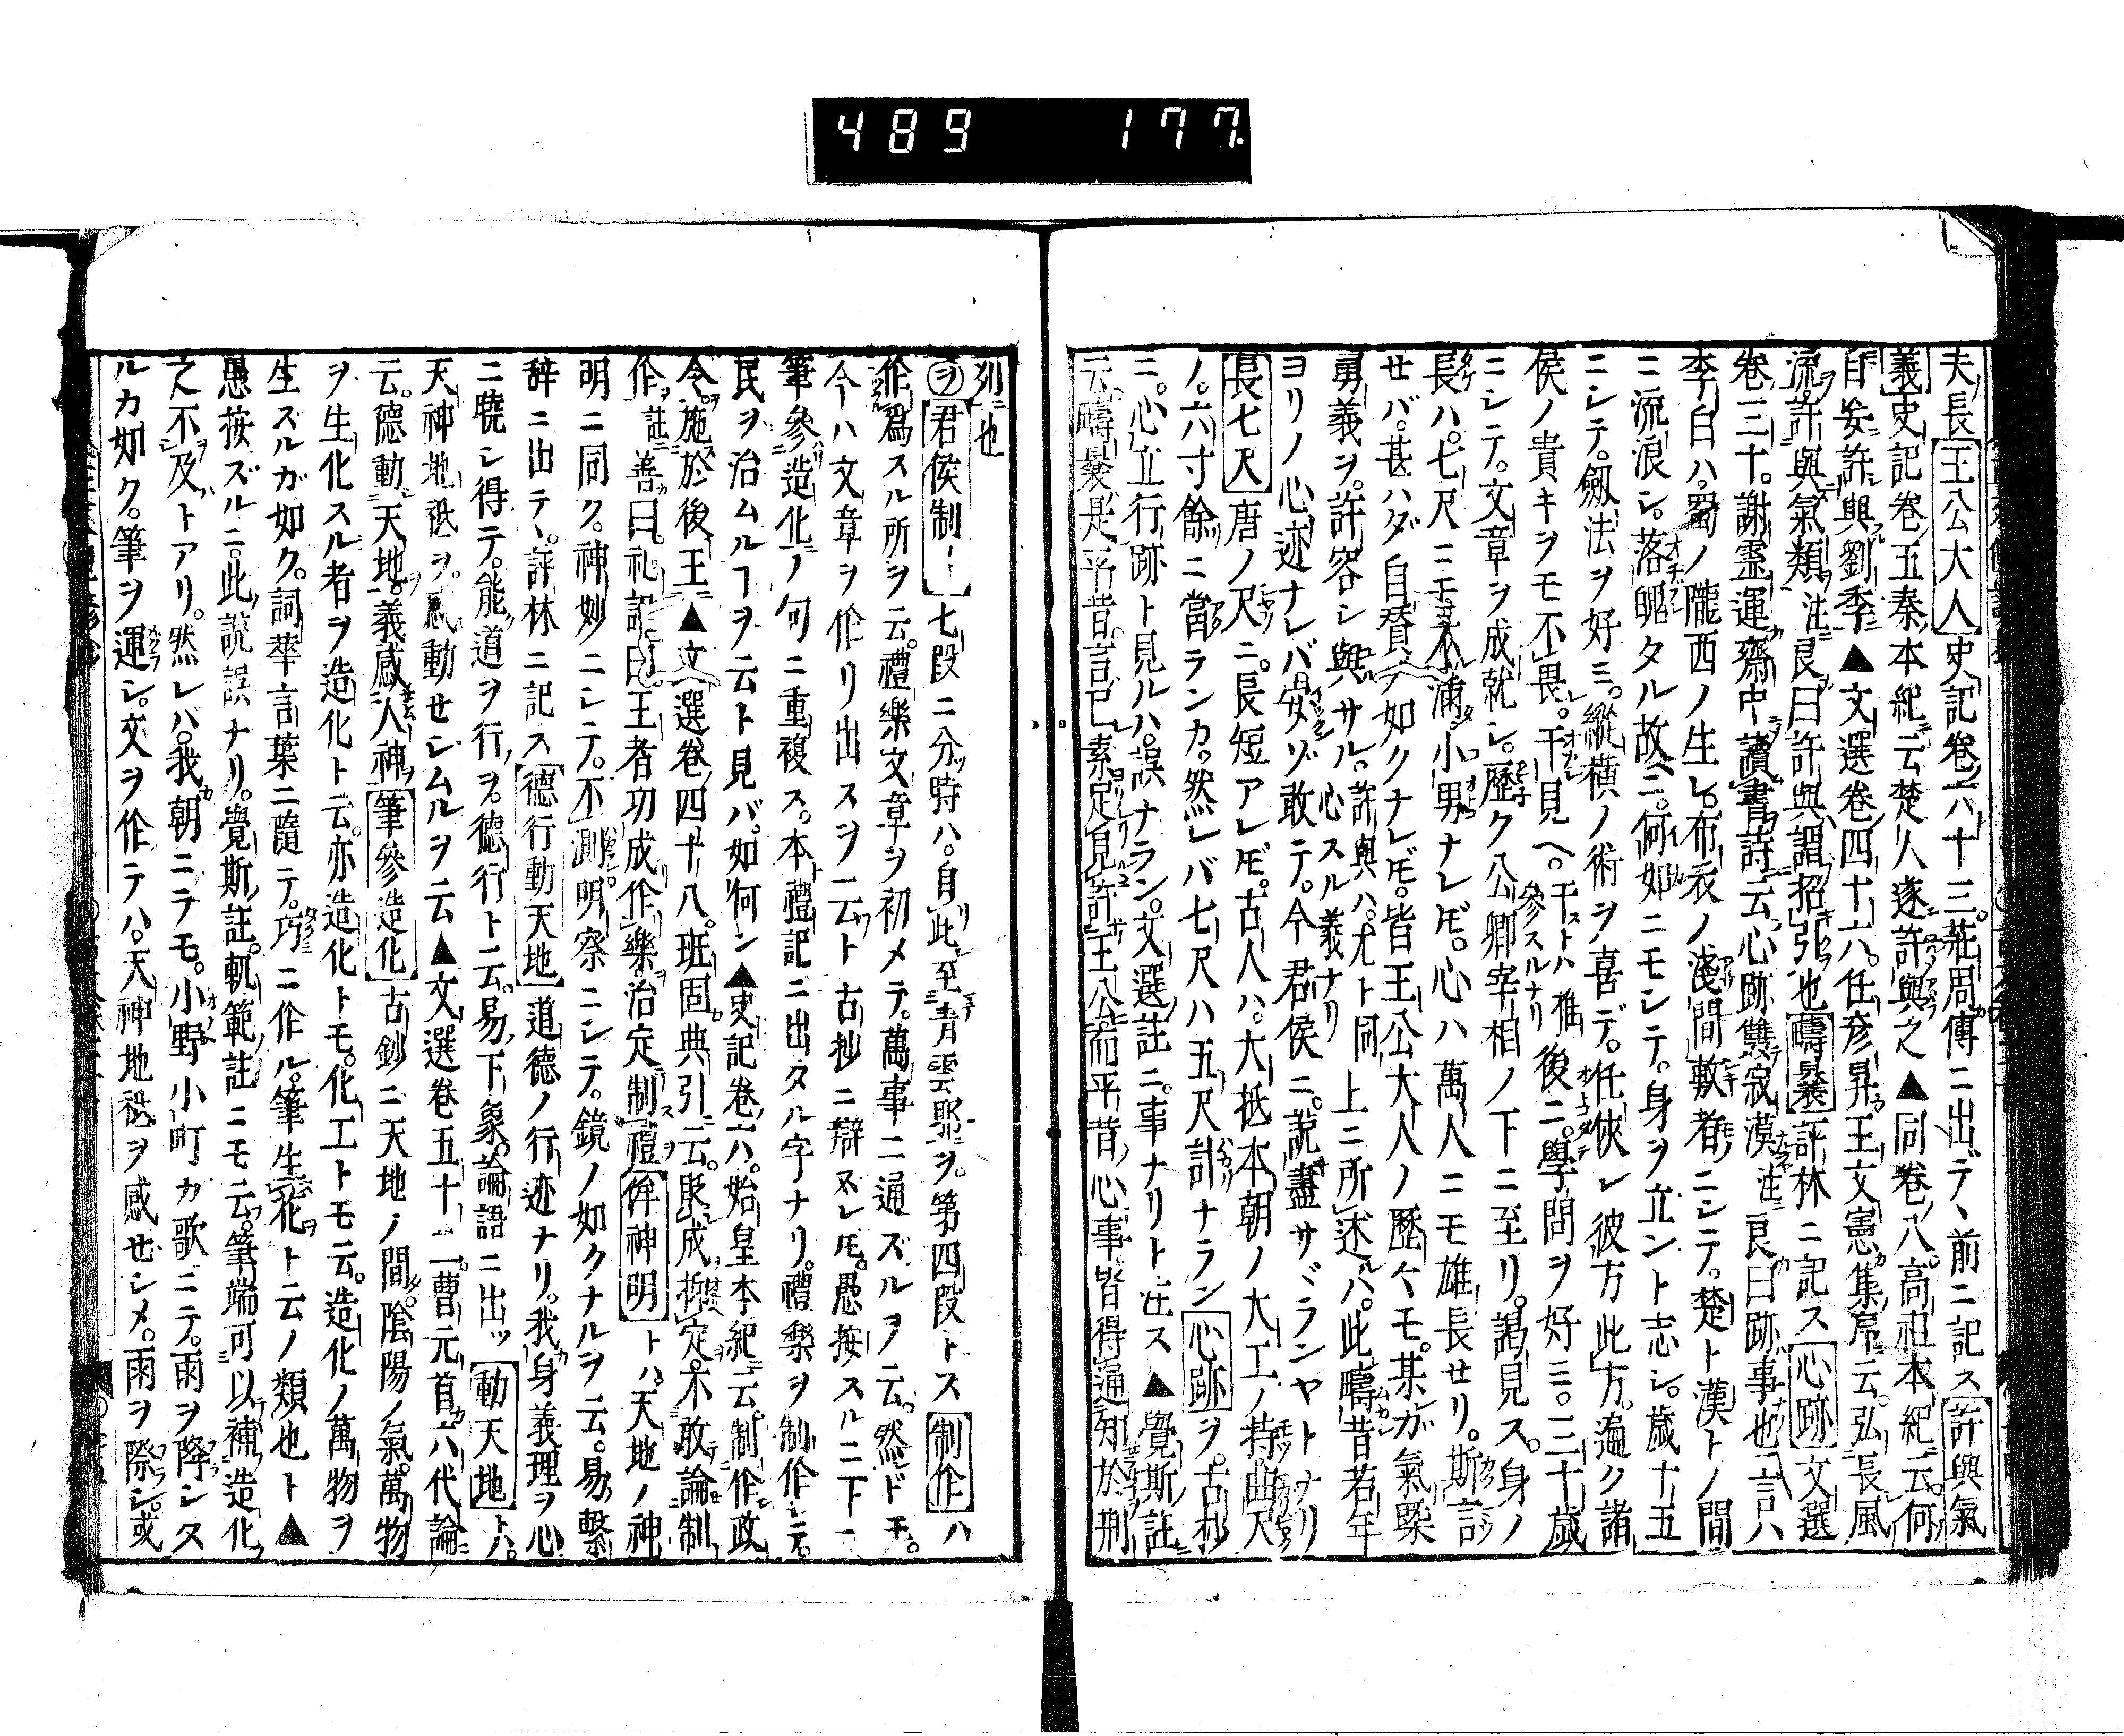 489 177
夫長王公大人史記卷六十三莊周傳ニ出デヽ前ニ記ス許與氣
義史記卷五秦本紀ニ云楚人遂許與之▲同卷八高祖本紀ニ云何
自妄許與劉季▲文選卷四十六任彦昇王文憲集序云弘長風
流許與氣類注良曰許與謂招引也疇曩評林ニ記ス心跡文選
卷三十謝靈運齋中讀書詩云心跡雙寂漠注良曰跡事也言ハ
李白ハ蜀ノ隴西ノ生レ布衣ノ淺間敷者ニシテ楚ト漢トノ間
ニ流浪シ落魄タル故ニ何如ニモシテ身ヲ立ント志シ歳十五
ニシテ劔法ヲ好ミ縱横ノ術ヲ喜デ任俠シ彼方此方遍ク諸
侯ノ貴キヲモ不畏干見ヘ干ストハ推參スルナリ後ニ學問ヲ好ミ三十歳
ニシテ文章ヲ成就シ歴ク公卿宰相ノ下ニ至リ謁見ス身ノ
長ハ七尺ニモ不滿小男ナレトモ心ハ萬人ニモ雄長セリ斯言
セバ甚ハダ自賛ノ如クナレトモ皆王公大人ノ歴々モ某ガ氣槩
勇義ヲ許容シ與サル心スル義ナリ許與ハ尤ト同上ニ所述ハ此疇昔若年
ヨリノ心迹ナレバ安ゾ敢テ今君侯ニ説盡サヾランヤトナリ
長七尺唐ノ尺ニ長短アレトモ古人ハ大抵本朝ノ大工ノ持曲尺
ノ六寸餘ニ當ランカ然レバ七尺ハ五尺計ナラン心跡ヲ古抄
ニ心立行跡ト見ルハ誤ナラン文選註ニ事ナリト注ス▲覺斯註
云疇曩是平昔言已素足見許王公而平昔心事皆得遍知於荆
列也
ヲ君侯制ーー七段ニ分時ハ自此至青雲耶ヲ第四段トス制作ハ
作爲スル所ヲ云禮樂文章ヲ初メテ萬事ニ通ズルヲノ云然ドモ
今ハ文章ヲ作リ出スヲ云ト古抄ニ辯スレトモ愚按スルニ下ー
筆參造化ノ句ニ重複ス本禮記ニ出タル字ナリ禮樂ヲ制作シテ
民ヲ治ムルヿヲ云ト見バ如何ン▲史記卷六始皇本紀云制作政
令施於後王▲文選卷四十八班固典引云
作註善曰礼記曰王者功成作樂治定制禮侔神明トハ天地ノ神
明ニ同ク神妙ニシテ不測明察ニシテ鏡ノ如クナルヲ云易繋
辞ニ出テヽ評林ニ記ス德行動天地道德ノ行迹ナリ我身義理ヲ心
ニ曉シ得テ能道ヲ行ヲ德行ト云易下象論語ニ出ッ動天地トハ
天神地祇ヲ感動セシムルヲ云▲文選卷五十二曹元首六代論
云德動天地義感人神筆參造化古鈔ニ天地ノ間陰陽ノ氣萬物
ヲ生化スル者ヲ造化ト云亦造化トモ化工トモ云造化ノ萬物ヲ
生ズルガ如ク詞華言葉ニ隨テ巧ニ作ル筆生花ト云ノ類也ト▲
愚按ズルニ此説誤ナリ覺斯註軌範註ニモ云筆端可以補造化
之不及トアリ然レハ我朝ニテモ小野小町カ歌ニテ雨ヲ降シス
ルカ如ク筆ヲ運シ文ヲ作テハ天神地祇ヲ感セシメ雨ヲ際シ或